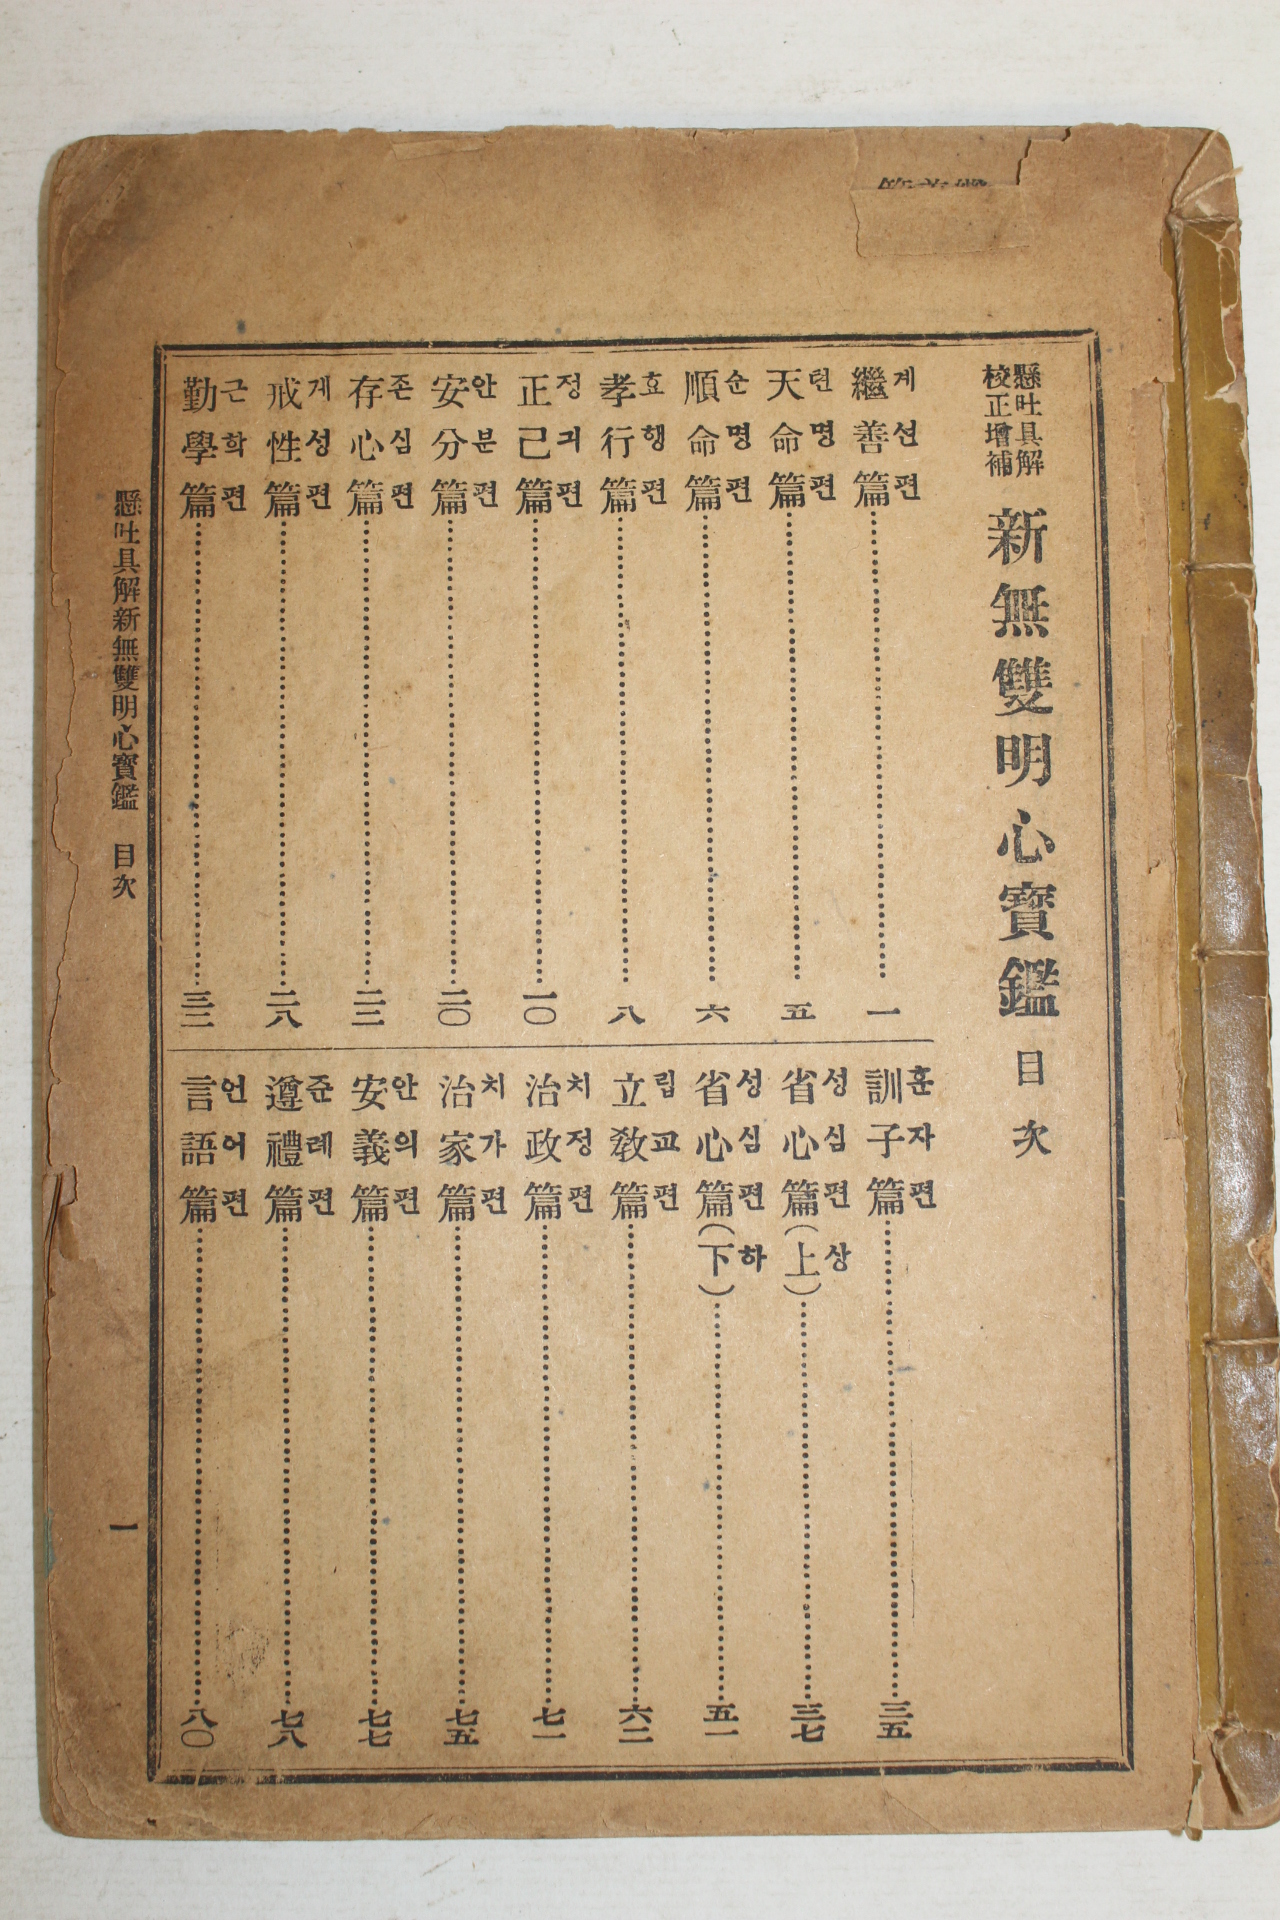 懸吐具解
校正增補
新無雙明心寶鑑 目次
계선편
繼善篇 一
텬명편
天命篇 五
순명편
順命篇 六
효행편
孝行篇 八
정긔편
正己篇 一〇
안분편
安分篇 二〇
존심편
存心篇 二三
계성편
戒性篇 二八
근학편
勤學篇 三二
훈자편
訓子篇 三五
성심편 상
省心篇(上) 三七
성심편 하
省心篇(下) 五一
립교편
立敎篇 六二
치정편
治政篇 七一
치가편
治家篇 七五
안의편
安義篇 七七
준례편
遵禮篇 七八
언어편
言語篇 八〇
懸吐具解新無雙明心寶鑑 目次 一